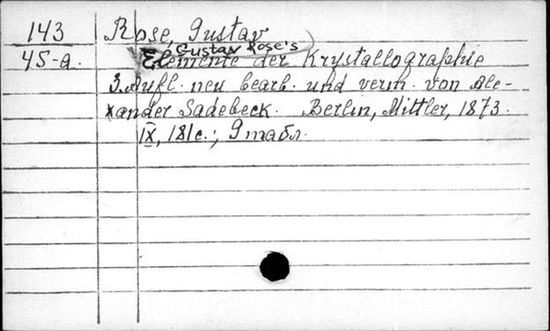 143 Rose, Gustav
Gustav Rose's
45-a. Elemente der Krystallographie
3. Aufl. neu bearb. und verm. von Ale-
xander Sadebeck. Berlin, Mittler, 1873.
IX, 181с.; 9 табл.